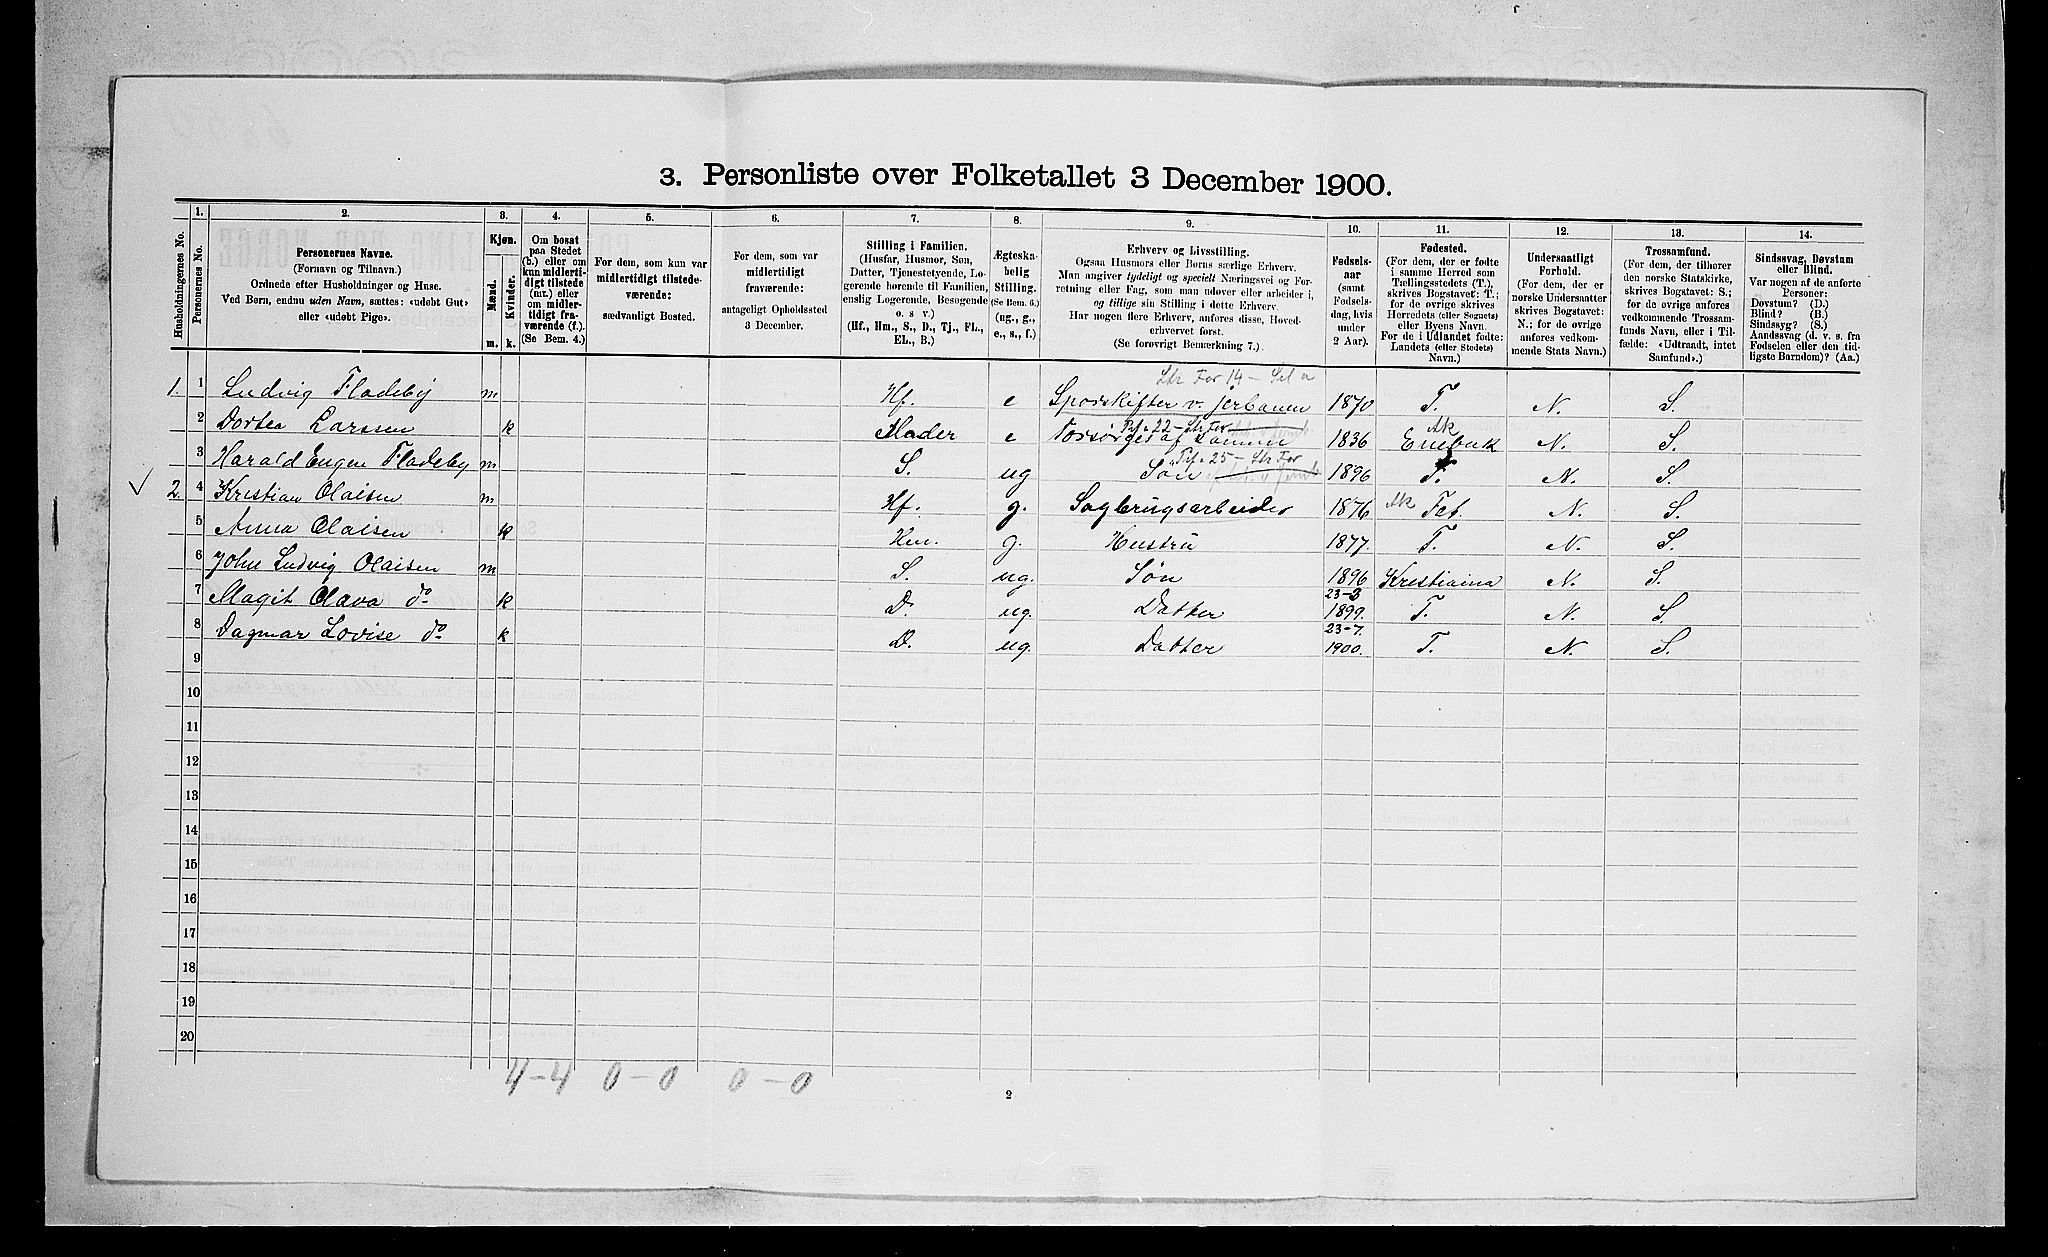 3. Personliste over Folketallet 3 December 1900.
1. 2. 3. 4. 5. 6. 7. 8. 9. 10. 11. 12. 13. 14.
Husholdningernes No.
Personernes No.
Personernes Navne.
(Fornavn og Tilnavn.)
Ordnede efter Husholdninger og Huse.
Ved Børn, endnu uden Navn, sættes: «udøbt Gut»
eller «udøbt Pige».
Kjøn.
Mænd. Kvinder.
m. k.
Om bosat
paa Stedet
(b.) eller om
kun midlerti-
digt tilstede
(mt.) eller
om midler-
tidigt fra-
værende (f.).
(Se Bem. 4.)
For dem, som kun var
midlertidigt tilstede-
værende:
sædvanligt Bosted.
For dem, som var
midlertidigt
fraværende:
antageligt Opholdssted
3 December.
Stilling i Familien.
(Husfar, Husmor, Søn,
Datter, Tjenestetyende, Lo-
gerende hørende til Familien,
enslig Logerende, Besøgende
o. s v.)
(Hf., Hm., S., D., Tj., FL.,
EL., B.)
Ægteska-
belig
Stilling.
(Se Bem. 6.)
(ug., g.,
e., s., f.)
Erhverv og Livsstilling.
Ogsaa Husmors eller Børns særlige Erhverv.
Man angiver tydeligt og specielt Næringsvei og For-
retning eller Fag, som man udøver eller arbeider i,
og tillige sin Stilling i dette Erhverv.
Har nogen flere Erhverv, anføres disse, Hoved-
erhvervet først.
(Se forøvrigt Bemærkning 7.)
Fødsels-
aar
(samt
Fødsels-
dag, hvis
under
2 Aar).
Fødested.
(For dem, der er fødte
i samme Herred som
Tællingsstedets (T.),
skrives Bogstavet: T.;
for de øvrige skrives
Herredets (eller Sognets)
eller Byens Navn.
For de i Udlandet fødte:
Landets (eller Stedets)
Navn.)
Undersaatligt
Forhold.
(For dem, der er
norske Undersaatter
skrives Bogstavet:
N.; for de øvrige
anføres vedkom-
mende Stats Navn.)
Trossamfund.
(For dem, der tilhører
den norske Statskirke,
skrives Bogstavet: S.;
for de øvrige anføres
vedkommende Trossam-
funds Navn, eller i Til-
fælde: «Udtraadt, intet
Samfund».)
Sindssvag, Døvstum
eller Blind.
Var nogen af de anførte
Personer:
Døvstum? (D.)
Blind? (B.)
Sindssyg? (S.)
Aandssvag (d. v. s. fra
Fødselen eller den tid-
ligste Barndom)? (Aa.)
14
1. 1 Ludvig Fladeby m Hf. e Sporskifter v. jerbanen 1870 T. N. S.
22 Ak
2 Dortea Larssen k Moder e Forsørges af Sønnen 1836 Enebak N. S.
25
3 Harald Eugen Fladeby m S. ug Søn 1896 T. N. S.
2. 4 Kristian Olaisen m Hf. g. Sagbrugsarbeider 1876 Ak Fet. N. S.
5 Anna Olaisen k Hm. g. Hustru 1877. T. N. S.
6 John Ludvig Olaisen m S. ug. Søn 1896 Kristiania N. S.
23-3
7 Magit Olava do k D. ug. Datter 1899. T. N. S.
23-7.
8 Dagmar Lovise do k D. ug. Datter 1900. T. N. S.
9
10
11
12
13
14
15
16
17
18
19
20
4-4 0-0 0-0
2